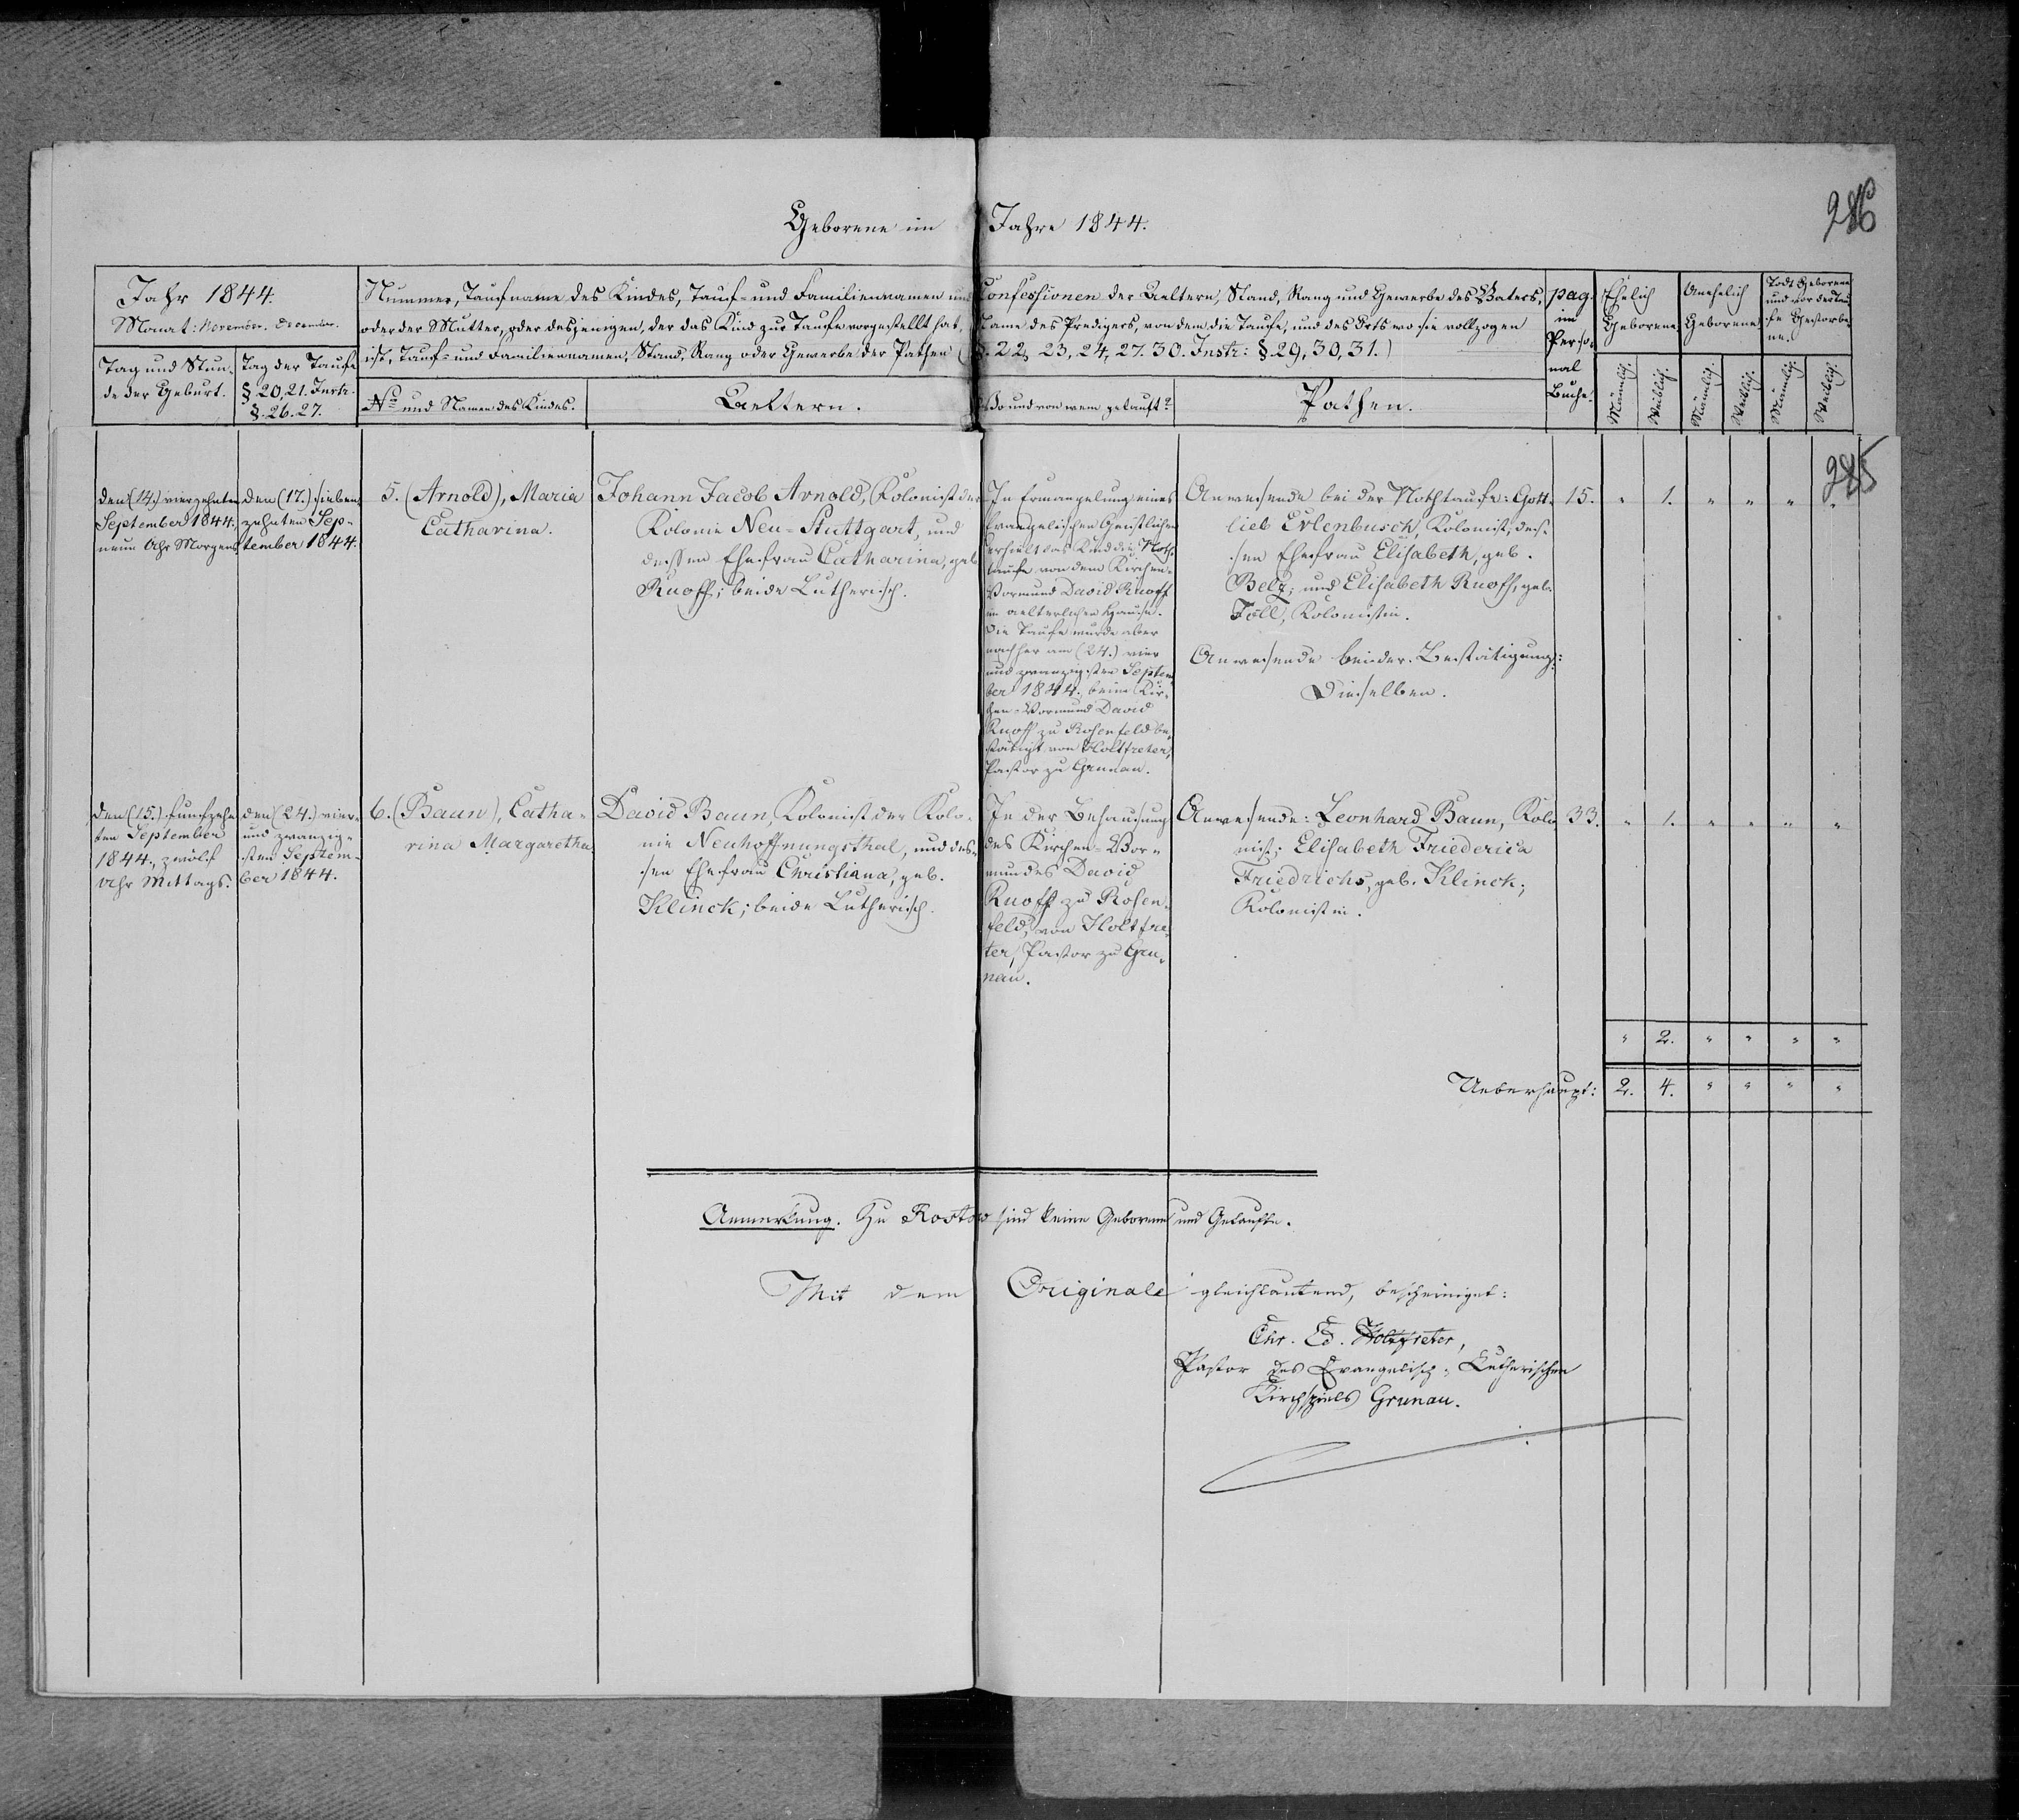 Geborene im Jahre 1844.
286
Jahr 1844.
Monat: November. December.
Tag und Stun-
de der Geburt.
Tag der Taufe
§ 20, 21. Instr.
§. 26. 27.
Nummer, Taufname des Kindes, Tauf- und Familiennamen und Confessionen der Aeltern, Stand, Rang und Gewerbe des Vaters,
oder der Mutter, oder desjenigen, der das Kind zur Taufe vorgestellt hat, Name des Predigers, von dem die Taufe, und des Orts wo sie vollzogen
ist, Tauf- und Familiennamen, Stand, Rang oder Gewerbe der Pathen (§. 22, 23, 24, 27. 30. Instr: §. 29, 30, 31.)
No und Namen des Kindes.
Aeltern.
Wo und von wem getauft?
Pathen.
pag.
im
Perso-
nal
Buche.
Ehelich
Geborene
Unehelich
Geborene
Todt Geborene
und vor der Tau-
fe Gestorbe-
ne.
Männlich.
Weiblich.
Männlich.
Weiblich.
Männlich.
Weiblich.
285
den (14.) vierzehnten
September 1844.,
neun Uhr Morgens
den (17.) sieben-
zehnten Sep-
tember 1844.
5. (Arnold), Maria
Catharina.
Johann Jacob Arnold, Kolonist der
Kolonie Neu-Stuttgart, und
dessen Ehefrau Catharina, geb.
Ruoff; beide Lutherisch.
In Ermangelung eines
Evangelischen Geistlichen
erhielt das Kind die Noth-
taufe von dem Kirchen-
Vormund David Ruoff
im aelterlichen Hause.
Die Taufe wurde aber
nachher am (24.) vier
und zwanzigsten Septem-
ber 1844. beim Kir-
chen-Vormund David
Ruoff zu Rosenfeld be-
stätigt von Holtfreter,
Pastor zu Grunau.
Anwesende bei der Nothtaufe: Gott-
lieb Erlenbusch, Kolonist, des-
sen Ehefrau Elisabeth, geb.
Belz; und Elisabeth Ruoff, geb.
Föll, Kolonistin.
Anwesende bei der Bestätigung:
Dieselben.
15. " 1. " " " "
den (15.) funfzehn-
ten September
1844., zwölf
Uhr Mittags.
den (24.) vier-
und zwanzig-
sten Septem-
ber 1844.
6. (Baun), Catha-
rina Margaretha
David Baun, Kolonist der Kolo-
nie Neuhoffnungsthal, und des-
sen Ehefrau Christiana, geb.
Klinck; beide Lutherisch.
In der Behausung
des Kirchen-Vor-
mundes David
Ruoff zu Rosen-
feld, von Holtfre-
ter, Pastor zu Gru-
nau.
Anwesende: Leonhard Baun, Kolo-
nist; Elisabeth Friederica
Friedrichs, geb. Klinck;
Kolonistin.
33. " 1. " " " "
" 2. " " " "
Ueberhaupt: 2. 4. " " " "
Anmerkung. Zu Rostow sind keine Geborene und Getaufte.
Mit dem Originale gleichlautend, bescheiniget:
Chr. Ed. Holtfreter,
Pastor des Evangelisch-Lutherischen
Kirchspiels Grunau.